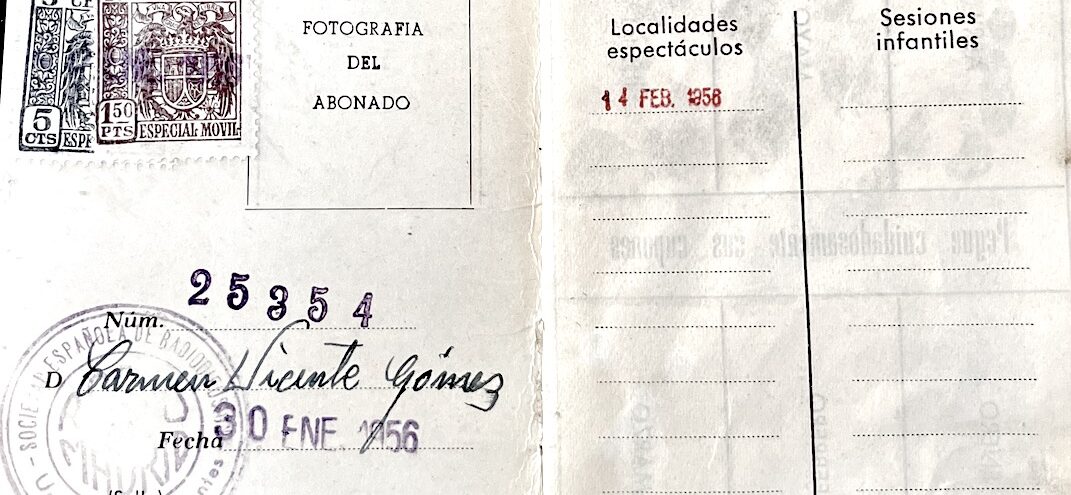 5 CTS
ESPE
1'50 PTS
ESPECIAL MOVIL
FOTOGRAFIA
DEL
ABONADO
Núm. 25354
D Carmen Vicente Gómez
Fecha 30 ENE. 1956
SOCIEDAD ESPAÑOLA DE RADIODIFUSIÓN
MADRID
Localidades
espectáculos
14 FEB. 1956
Sesiones
infantiles
Pegue cuidadosamente sus cupones